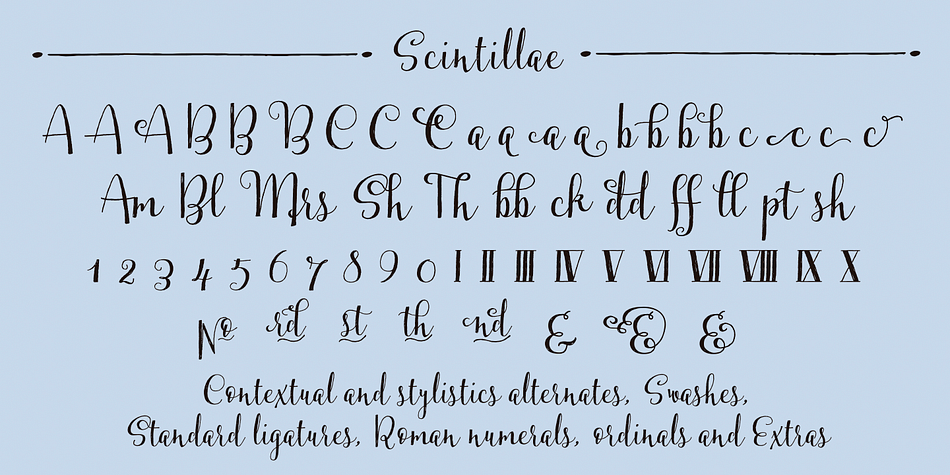 Scintillae
A A A B B B C C C a a a a b b b b c c c c
Am Bl Mrs Sh Th bb ck dd ff ll pt sh
1 2 3 4 5 6 7 8 9 0 I II III IV V VI VII VIII IX X
No rd st th nd & & &
Contextual and stylistics alternates, Swashes,
Standard ligatures, Roman numerals, ordinals and Extras